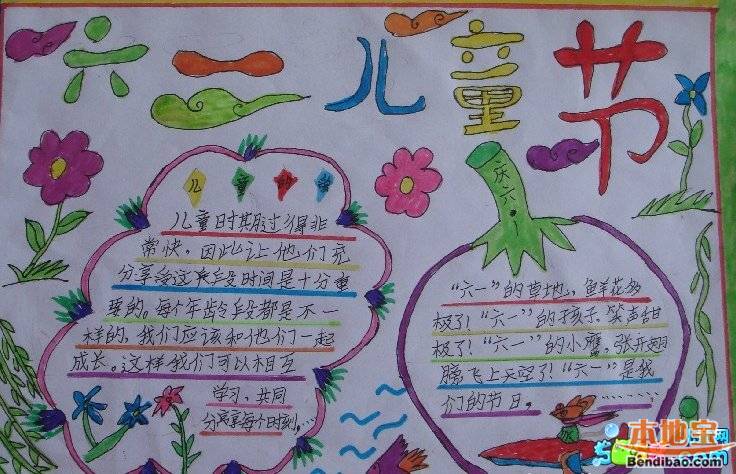 六一儿童节
儿童的
儿童时期过得非
常快，因此让他们充
分享受这段时间是十分重
要的。每个年龄段都是不一
样的，我们应该和他们一起
成长。这样我们可以相互
学习，共同
分享每个时刻……
庆六一
“六一”的草地，鲜花多
极了！“六一”的孩子，笑声甜
极了！“六一”的小鹰，张开翅
膀飞上天空了！“六一”是我
们的节日。…………
本地宝
Bendibao.com